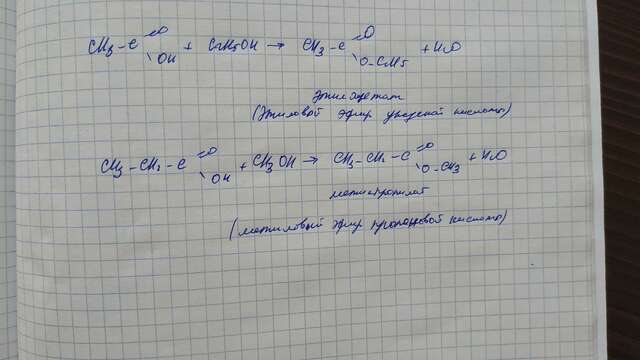 CH3 - C =O OH + C2H5OH → CH3 - C =O O-C2H5 + H2O
этилацетат
(Этиловый эфир уксусной кислоты)
CH3 - CH2 - C =O OH + CH3OH → CH3 - CH2 - C =O O-CH3 + H2O
метилпропилат
(метиловый эфир пропановой кислоты)